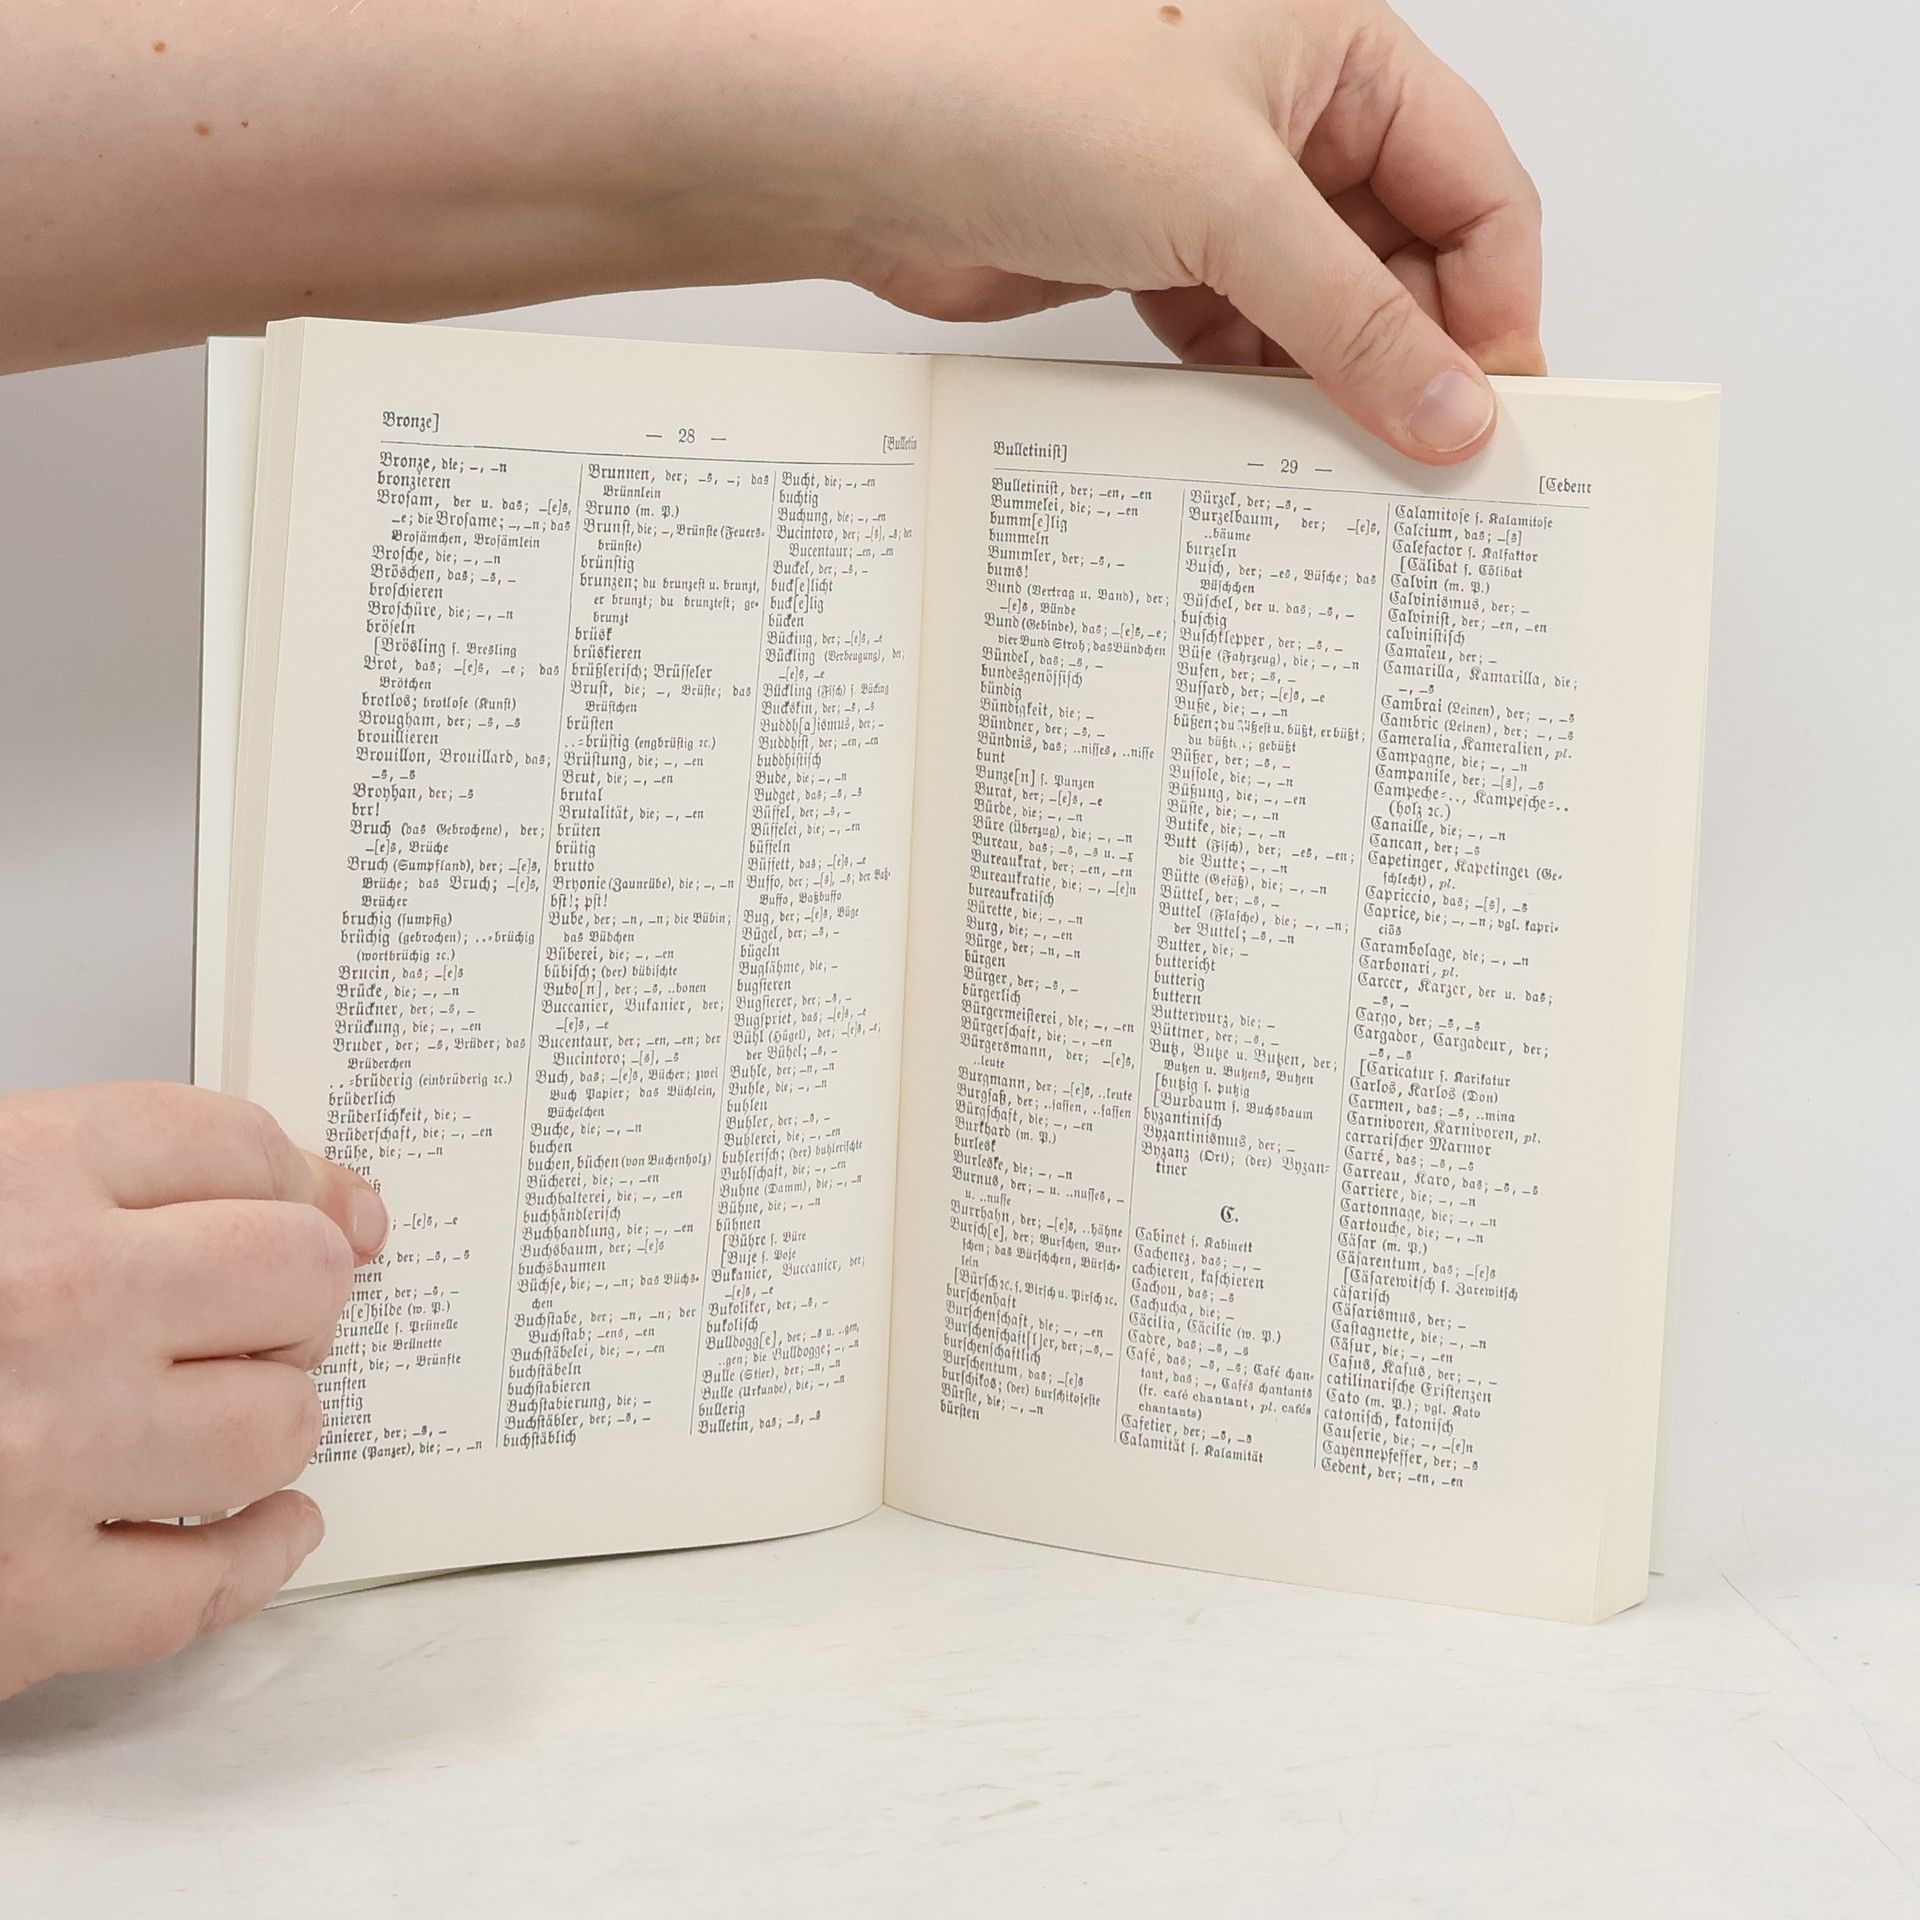 Bronze]
— 28 —
[Bulletin
Bronze, die; –, –n
bronzieren
Broſam, der u. das; –[e]s,
–e; die Broſame; –, –n; das
Broſämchen, Broſämlein
Broſche, die; –, –n
Bröschen, das; –s, –
broſchieren
Broſchüre, die; –, –n
bröſeln
[Brösling ſ. Bresling
Brot, das; –[e]s, –e; das
Brötchen
brotlos; brotloſe (Kunſt)
Brougham, der; –s, –s
brouillieren
Brouillon, Brouillard, das;
–s, –s
Broyhan, der; –s
brr!
Bruch (das Gebrochene), der;
–[e]s, Brüche
Bruch (Sumpfland), der; –[e]s,
Brüche; das Bruch; –[e]s,
Brücher
bruchig (ſumpfig)
brüchig (gebrochen); ..=brüchig
(wortbrüchig ꝛc.)
Brucin, das; –[e]s
Brücke, die; –, –n
Brückner, der; –s, –
Brückung, die; –, –en
Bruder, der; –s, Brüder; das
Brüderchen
..=brüderig (einbrüderig ꝛc.)
brüderlich
Brüderlichkeit, die; –
Brüderſchaft, die; –, –en
Brühe, die; –, –n
; –[e]s, –e
der; –s, –s
der; –s, –
(w. P.)
Brunelle ſ. Prünelle
die Brünette
Brunft, die; –, Brünfte
Brünne (Panzer), die; –, –n
Brunnen, der; –s, –; das
Brünnlein
Bruno (m. P.)
Brunſt, die; –, Brünſte (Feuers=
brünſte)
brünſtig
brunzen; du brunzeſt u. brunzt,
er brunzt; du brunzteſt; ge=
brunzt
brüsk
brüskieren
brüßleriſch; Brüſſeler
Bruſt, die; –, Brüſte; das
Brüſtchen
brüſten
..=brüſtig (engbrüſtig ꝛc.)
Brüſtung, die; –, –en
Brut, die; –, –en
brutal
Brutalität, die; –, –en
brüten
brütig
brutto
Bryonie (Zaunrübe), die; –, –n
bſt!; pſt!
Bube, der; –n, –n; die Bübin;
das Bübchen
Büberei, die; –, –en
bübiſch; (der) bübiſchte
Bubo[n], der; –s, ..bonen
Buccanier, Bukanier, der;
–[e]s, –e
Bucentaur, der; –en, –en; der
Bucintoro; –[s], –s
Buch, das; –[e]s, Bücher; zwei
Buch Papier; das Büchlein,
Büchelchen
Buche, die; –, –n
buchen
buchen, büchen (von Buchenholz)
Bücherei, die; –, –en
Buchhalterei, die; –, –en
buchhändleriſch
Buchhandlung, die; –, –en
Buchsbaum, der; –[e]s
buchsbaumen
Büchſe, die; –, –n; das Büchs=
chen
Buchſtabe, der; –n, –n; der
Buchſtab; –ens, –en
Buchſtäbelei, die; –, –en
buchſtäbeln
buchſtabieren
Buchſtabierung, die; –
Buchſtäbler, der; –s, –
buchſtäblich
Bucht, die; –, –en
buchtig
Buchung, die; –, –en
Bucintoro, der; –[s], –s; der
Bucentaur; –en, –en
Buckel, der; –s, –
buck[e]licht
buck[e]lig
bücken
Bücking, der; –[e]s, –e
Bückling (Verbeugung), der;
–[e]s, –e
Bückling (Fiſch) ſ. Bücking
Buckskin, der; –s, –s
Buddh[a]ismus, der; –
Buddhiſt, der; –en, –en
buddhiſtiſch
Bude, die; –, –n
Budget, das; –s, –s
Büffel, der; –s, –
Büffelei, die; –, –en
büffeln
Büffett, das; –[e]s, –e
Buffo, der; –[s], –s; der Baß=
Buffo, Baßbuffo
Bug, der; –[e]s, Büge
Bügel, der; –s, –
bügeln
Buglähme, die; –
bugſieren
Bugſierer, der; –s, –
Bugſpriet, das; –[e]s, –e
Bühl (Hügel), der; –[e]s, –e;
der Bühel; –s, –
Buhle, der; –n, –n
Buhle, die; –, –n
buhlen
Buhler, der; –s, –
Buhlerei, die; –, –en
buhleriſch; (der) buhleriſchte
Buhlſchaft, die; –, –en
Buhne (Damm), die; –, –n
Bühne, die; –, –n
bühnen
[Bühre ſ. Büre
[Buje ſ. Boje
Bukanier, Buccanier, der;
–[e]s, –e
Bukoliker, der; –s, –
bukoliſch
Bulldogg[e], der; –s u. ..gen,
..gen; die Bulldogge; –, –n
Bulle (Stier), der; –n, –n
Bulle (Urkunde), die; –, –n
bullerig
Bulletin, das; –s, –s
Bulletiniſt]
— 29 —
[Cedent
Bulletiniſt, der; –en, –en
Bummelei, die; –, –en
bumm[e]lig
bummeln
Bummler, der; –s, –
bums!
Bund (Vertrag u. Band), der;
–[e]s, Bünde
Bund (Gebinde), das; –[e]s, –e;
vier Bund Stroh; das Bündchen
Bündel, das; –s, –
bundesgenöſſiſch
bündig
Bündigkeit, die; –
Bündner, der; –s, –
Bündnis, das; ..niſſes, ..niſſe
bunt
Bunze[n] ſ. Punzen
Burat, der; –[e]s, –e
Bürde, die; –, –n
Büre (Überzug), die; –, –n
Bureau, das; –s, –s u. –x
Bureaukrat, der; –en, –en
Bureaukratie, die; –, –[e]n
bureaukratiſch
Bürette, die; –, –n
Burg, die; –, –en
Bürge, der; –n, –n
bürgen
Bürger, der; –s, –
bürgerlich
Bürgermeiſterei, die; –, –en
Bürgerſchaft, die; –, –en
Bürgersmann, der; –[e]s,
..leute
Burgmann, der; –[e]s, ..leute
Burgſaß, der; ..ſaſſen, ..ſaſſen
Bürgſchaft, die; –, –en
Burkhard (m. P.)
burlesk
Burleske, die; –, –n
Burnus, der; – u. ..nuſſes, –
u. ..nuſſe
Burrhahn, der; –[e]s, ..hähne
Burſch[e], der; Burſchen, Bur=
ſchen; das Bürſchchen, Bürſch=
lein
[Bürſch ꝛc. ſ. Birſch u. Pirſch ꝛc.
burſchenhaft
Burſchenſchaft, die; –, –en
Burſchenſchaft[l]er, der; –s, –
burſchenſchaftlich
Burſchentum, das; –[e]s
burſchikos; (der) burſchikoſeſte
Bürſte, die; –, –n
bürſten
Bürzel, der; –s, –
Burzelbaum, der; –[e]s,
..bäume
burzeln
Buſch, der; –es, Büſche; das
Büſchchen
Büſchel, der u. das; –s, –
buſchig
Buſchklepper, der; –s, –
Büſe (Fahrzeug), die; –, –n
Buſen, der; –s, –
Buſſard, der; –[e]s, –e
Buße, die; –, –n
büßen; du büßeſt u. büßt, er büßt;
du büßt..; gebüßt
Büßer, der; –s, –
Buſſole, die; –, –n
Büßung, die; –, –en
Büſte, die; –, –n
Butike, die; –, –n
Butt (Fiſch), der; –es, –en;
die Butte; –, –n
Bütte (Gefäß), die; –, –n
Büttel, der; –s, –
Buttel (Flaſche), die; –, –n;
der Buttel; –s, –n
Butter, die; –
buttericht
butterig
buttern
Butterwurz, die; –
Büttner, der; –s, –
Butz, Butze u. Butzen, der;
Butzen u. Butzens, Butzen
[butzig ſ. putzig
[Buxbaum ſ. Buchsbaum
byzantiniſch
Byzantinismus, der; –
Byzanz (Ort); (der) Byzan=
tiner
C.
Cabinet ſ. Kabinett
Cachenez, das; –, –
cachieren, kaſchieren
Cachou, das; –s
Cachucha, die; –
Cäcilia, Cäcilie (w. P.)
Cadre, das; –s, –s
Café, das; –s, –s; Café chan=
tant, das; –, Cafés chantants
(fr. café chantant, pl. cafés
chantants)
Cafetier, der; –s, –s
Calamität ſ. Kalamität
Calamitoſe ſ. Kalamitoſe
Calcium, das; –[s]
Calefactor ſ. Kalfaktor
[Cälibat ſ. Cölibat
Calvin (m. P.)
Calvinismus, der; –
Calviniſt, der; –en, –en
calviniſtiſch
Camaïeu, der; –
Camarilla, Kamarilla, die;
–, –s
Cambrai (Leinen), der; –, –s
Cambric (Leinen), der; –, –s
Cameralia, Kameralien, pl.
Campagne, die; –, –n
Campanile, der; –[s], –s
Campeche=.., Kampeſche=..
(holz ꝛc.)
Canaille, die; –, –n
Cancan, der; –s
Capetinger, Kapetinger (Ge=
ſchlecht), pl.
Capriccio, das; –[s], –s
Caprice, die; –, –n; vgl. kapri=
ciös
Carambolage, die; –, –n
Carbonari, pl.
Carcer, Karzer, der u. das;
–s, –
Cargo, der; –s, –s
Cargador, Cargadeur, der;
–s, –s
[Caricatur ſ. Karikatur
Carlos, Karlos (Don)
Carmen, das; –s, ..mina
Carnivoren, Karnivoren, pl.
carrariſcher Marmor
Carré, das; –s, –s
Carreau, Karo, das; –s, –s
Carriere, die; –, –n
Cartonnage, die; –, –n
Cartouche, die; –, –n
Cäſar (m. P.)
Cäſarentum, das; –[e]s
[Cäſarewitſch ſ. Zarewitſch
cäſariſch
Cäſarismus, der; –
Caſtagnette, die; –, –n
Cäſur, die; –, –en
Caſus, Kaſus, der; –, –
catilinariſche Exiſtenzen
Cato (m. P.); vgl. Kato
catoniſch, katoniſch
Cauſerie, die; –, –[e]n
Cayennepfeffer, der; –s
Cedent, der; –en, –en